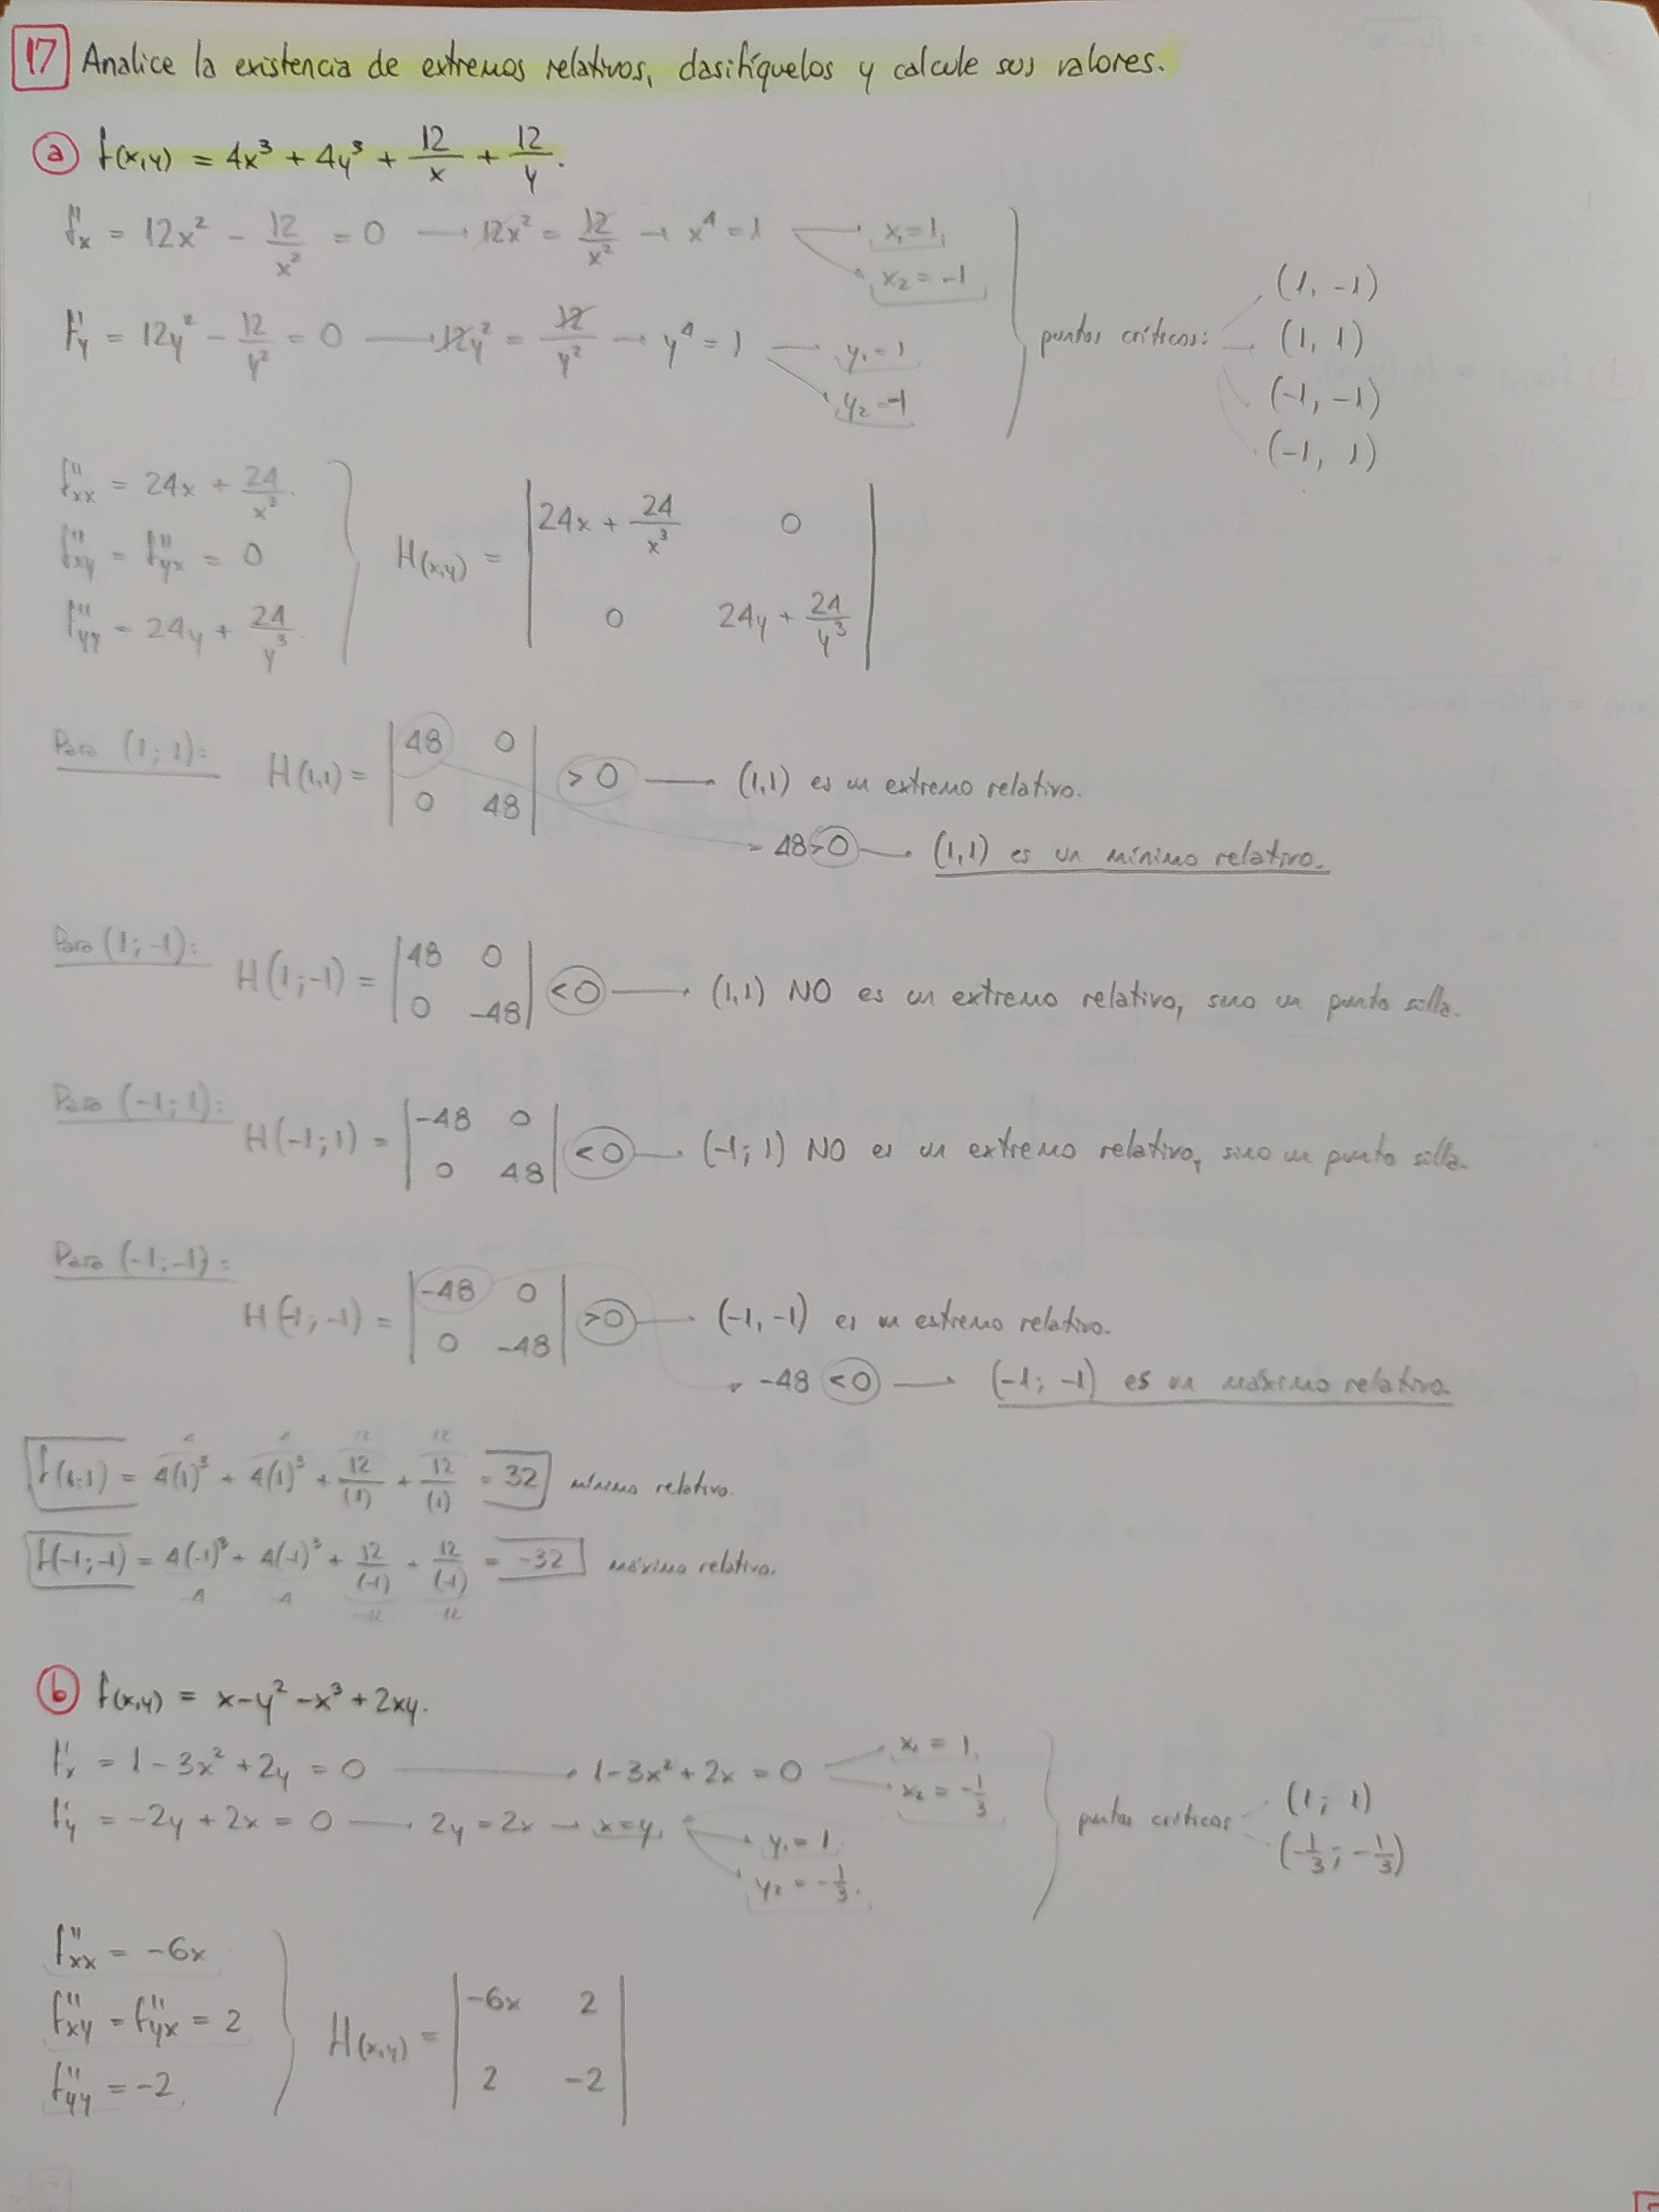 17 Analice la existencia de extremos relativos, clasifíquelos y calcule sus valores.
a f(x,y) = 4x³ + 4y³ + 12/x + 12/y.
f'x = 12x² - 12/x² = 0 → 12x² = 12/x² → x⁴ = 1 x₁ = 1, x₂ = -1
f'y = 12y² - 12/y² = 0 → 12y² = 12/y² → y⁴ = 1 y₁ = 1 y₂ = -1
puntos críticos: (1, -1) (1, 1) (-1, -1) (-1, 1)
f''xx = 24x + 24/x³.
f''xy = f''yx = 0
f''yy = 24y + 24/y³.
H(x,y) = | 24x + 24/x³ 0 |
| 0 24y + 24/y³ |
Para (1; 1): H(1,1) = | 48 0 | 0 48 | > 0 → (1,1) es un extremo relativo.
48 > 0 → (1,1) es un mínimo relativo.
Para (1; -1): H(1; -1) = | 48 0 | 0 -48 | < 0 → (1,1) NO es un extremo relativo, sino un punto silla.
Para (-1; 1): H(-1; 1) = | -48 0 | 0 48 | < 0 → (-1; 1) NO es un extremo relativo, sino un punto silla.
Para (-1; -1): H(-1; -1) = | -48 0 | 0 -48 | > 0 → (-1, -1) es un extremo relativo.
-48 < 0 → (-1; -1) es un máximo relativo.
4 4 12 12
f(1,1) = 4(1)³ + 4(1)³ + 12/(1) + 12/(1) = 32 mínimo relativo.
f(-1; -1) = 4(-1)³ + 4(-1)³ + 12/(-1) + 12/(-1) = -32 máximo relativo.
-4 -4 -12 -12
b f(x,y) = x - y² - x³ + 2xy.
f'x = 1 - 3x² + 2y = 0 → 1 - 3x² + 2x = 0 x₁ = 1, x₂ = -1/3
f'y = -2y + 2x = 0 → 2y = 2x → x = y, y₁ = 1 y₂ = -1/3.
puntos críticos (1; 1) (-1/3; -1/3)
f''xx = -6x
f''xy = f''yx = 2
f''yy = -2
H(x,y) = | -6x 2 |
| 2 -2 |